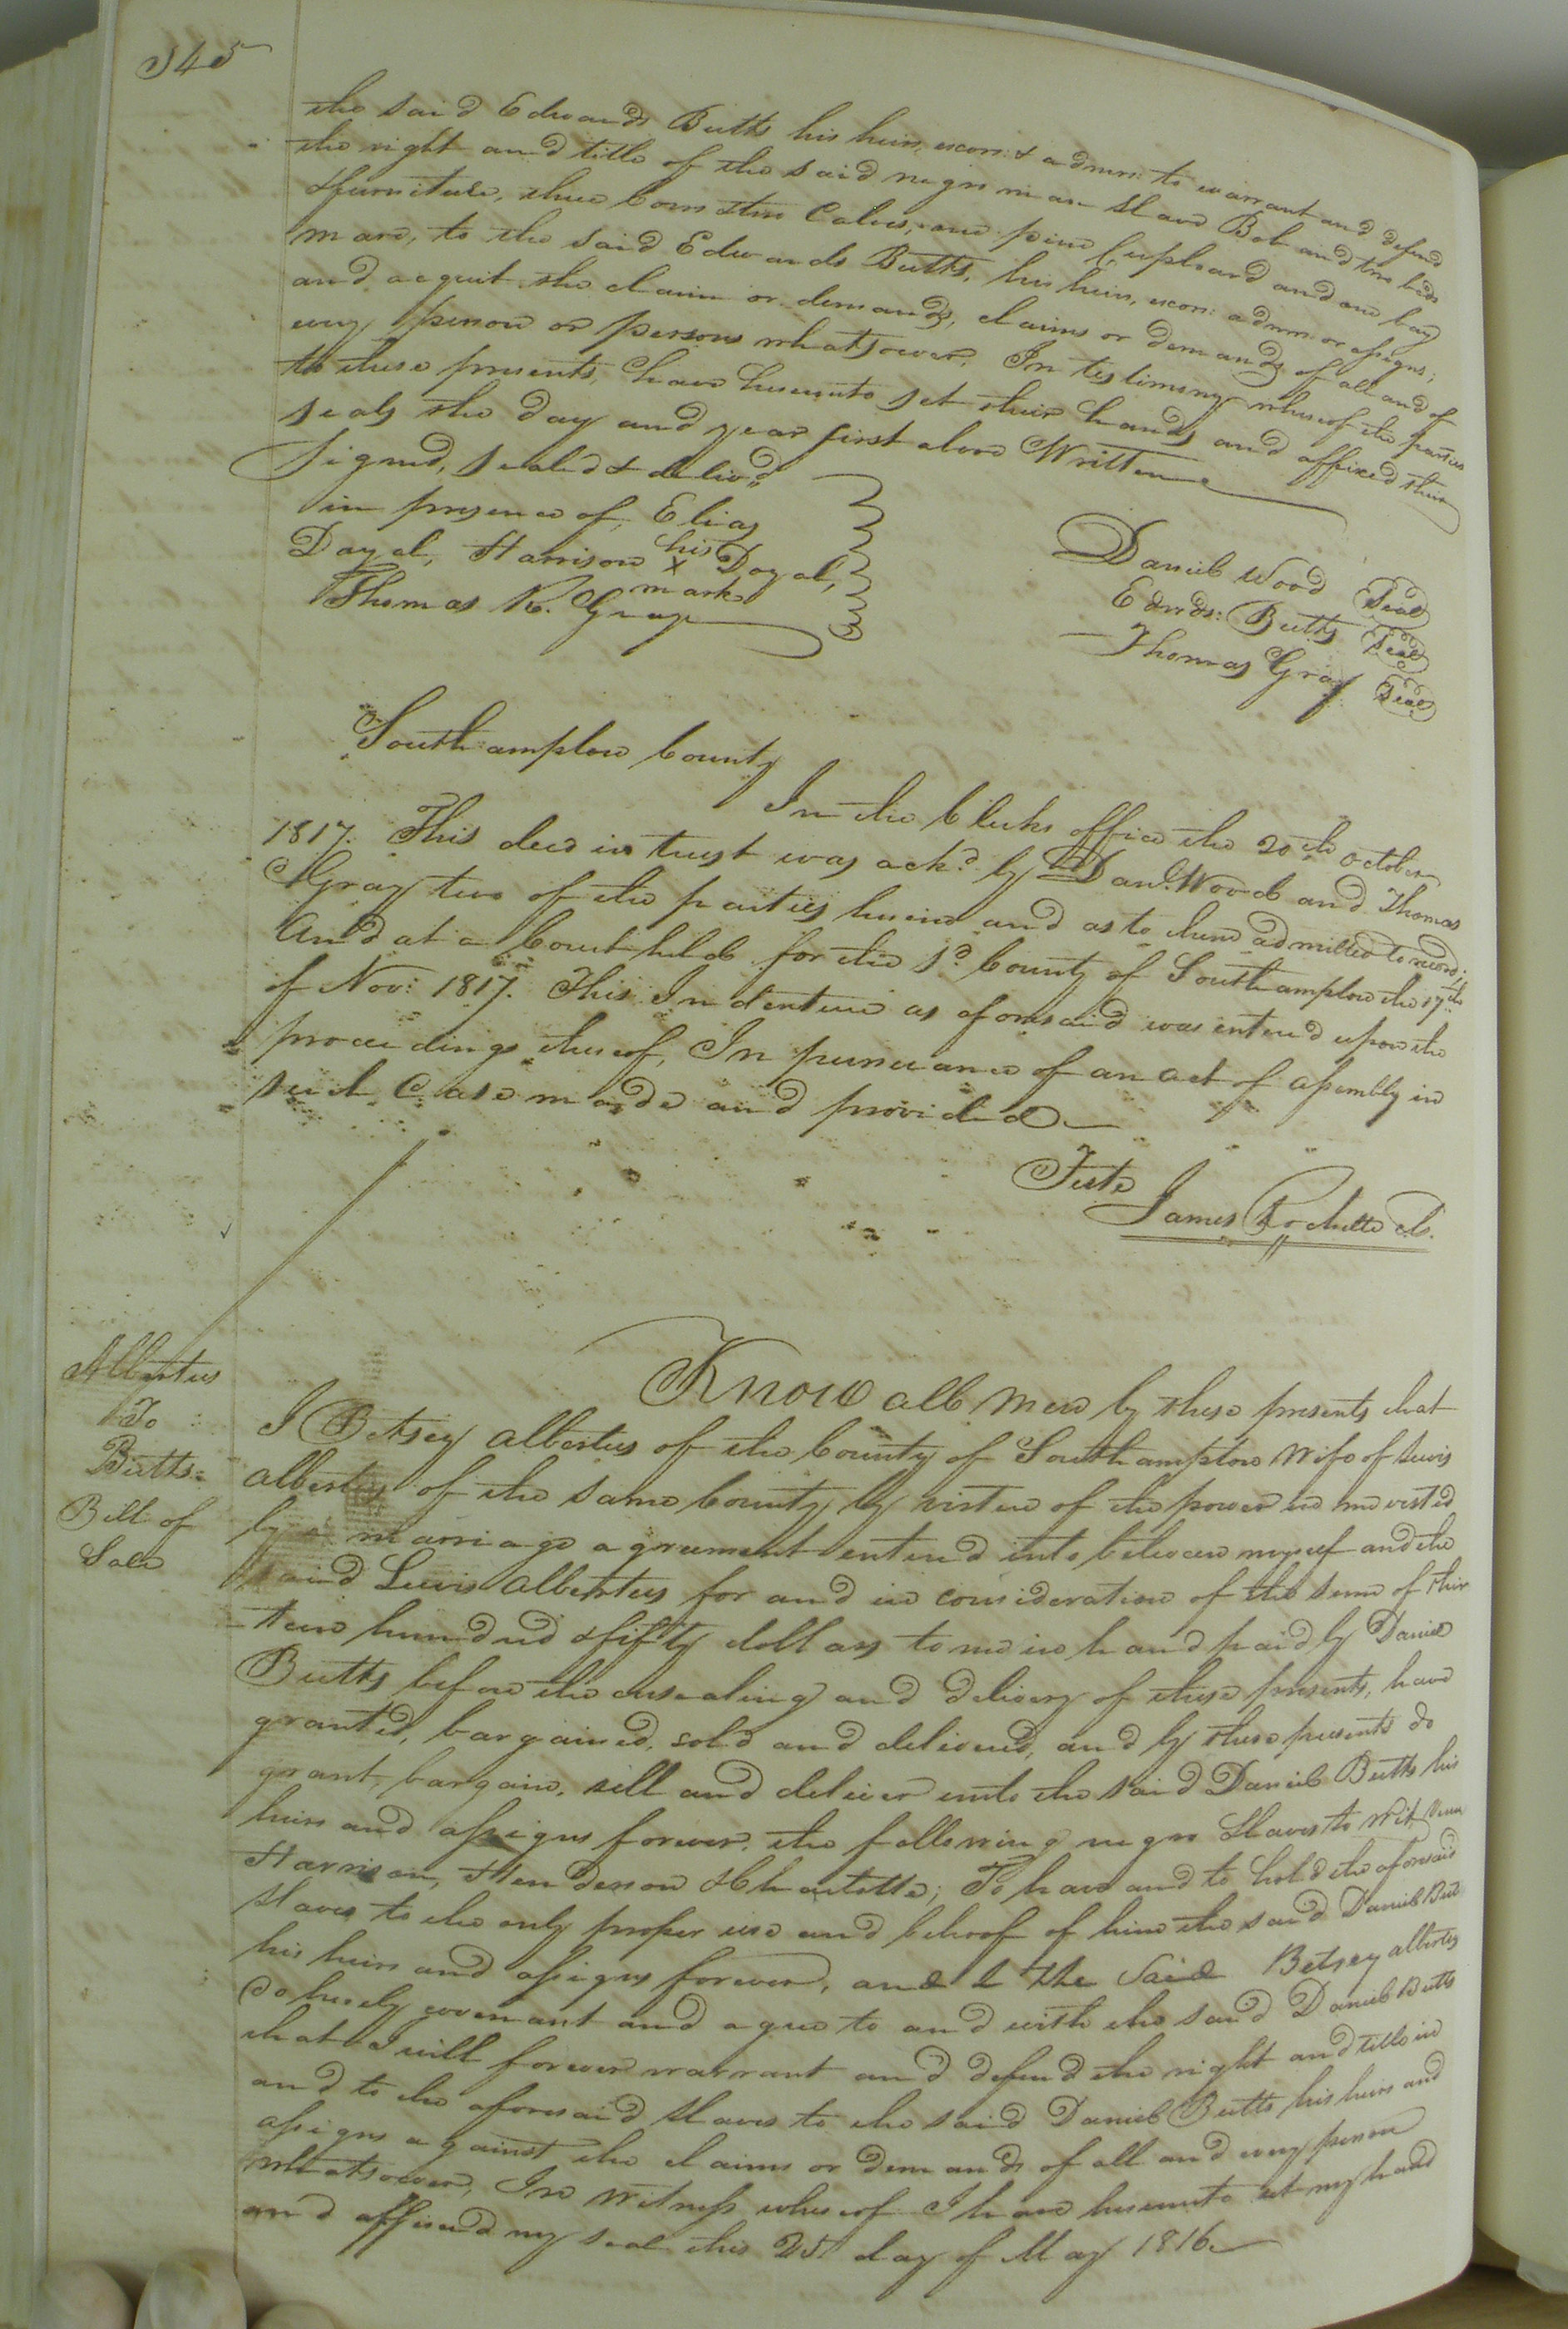 345
the said Edwards Butts his heirs, exors: & admrs: to warrant and defend
the right and title of the said negro man slave Bob and two beds
& furniture, three Cows & two Calves, one pine Cupboard and one bay
mare, to the said Edwards Butts, his heirs, exors: admrs or assigns;
and acquit the claim or demands, claims or demands of all and of
every person or persons whatsoever, In testimony whereof the parties
to these presents, have hereunto set their hands and affixed their
seals the day and year first above Written
Signed, sealed & deliv'd
in presence of, Elias
Doyal, Harrison his x mark Doyal,
Thomas R. Gray
Daniel Wood Seal
Edwds: Butts Seal
Thomas Gray Seal
Southampton County
In the Clerks office the 20th October
1817. This deed in trust was ackd. by Danl. Wood and Thomas
Gray two of the parties herein and as to them admitted to record:
And at a Court held for the sd. County of Southampton the 17th
of Nov: 1817. This Indenture as aforesaid was entered upon the
proceedings thereof, In pursuance of an act of assembly in
such Case made and provided
Teste
James Rochelle Ck.
Albertus
To
Butts
Bill of
Sale
Know all Men by these presents that
I Betsey Albertus of the County of Southampton Wife of Lewis
Albertus of the same County by virtue of the power in me vested
by a marriage agreement entered into between myself and the
said Lewis Albertus for and in consideration of the sum of thir
-teen hundred & fifty dollars to me in hand paid by Daniel
Butts before the ensealing and delivery of these presents, have
granted, bargained, sold and delivered, and by these presents do
grant, bargain, sell and deliver unto the said Daniel Butts his
heirs and assigns forever, the following negro Slaves to Wit,
Harrison, Henderson & Charlotte; To have and to hold the aforesaid
slaves to the only proper use and behoof of him the said Daniel Butts
his heirs and assigns forever, and I the Said Betsey Albertus
do hereby covenant and agree to and with the said Daniel Butts
that I will forever warrant and defend the right and title in
and to the aforesaid slaves to the said Daniel Butts his heirs and
assigns against the claims or demands of all and every person
whatsoever, In Witness whereof I have hereunto set my hand
and affixed my seal this 25 day of May 1816